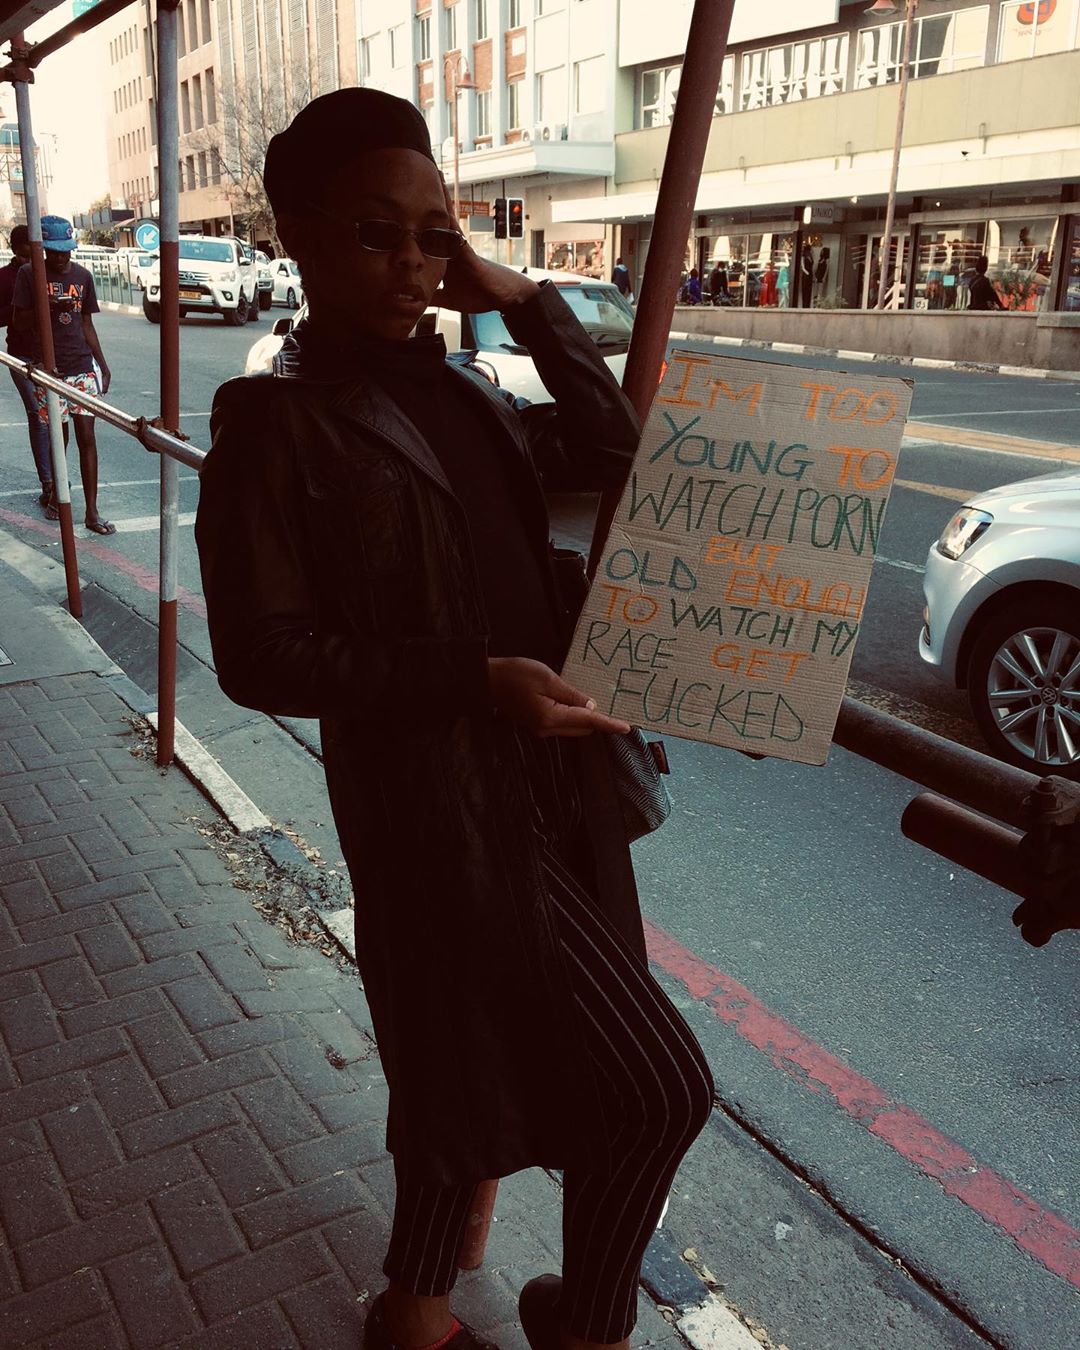 I'M TOO
YOUNG TO
WATCH PORN
BUT
OLD ENOUGH
TO WATCH MY
RACE GET
FUCKED
UNIKO